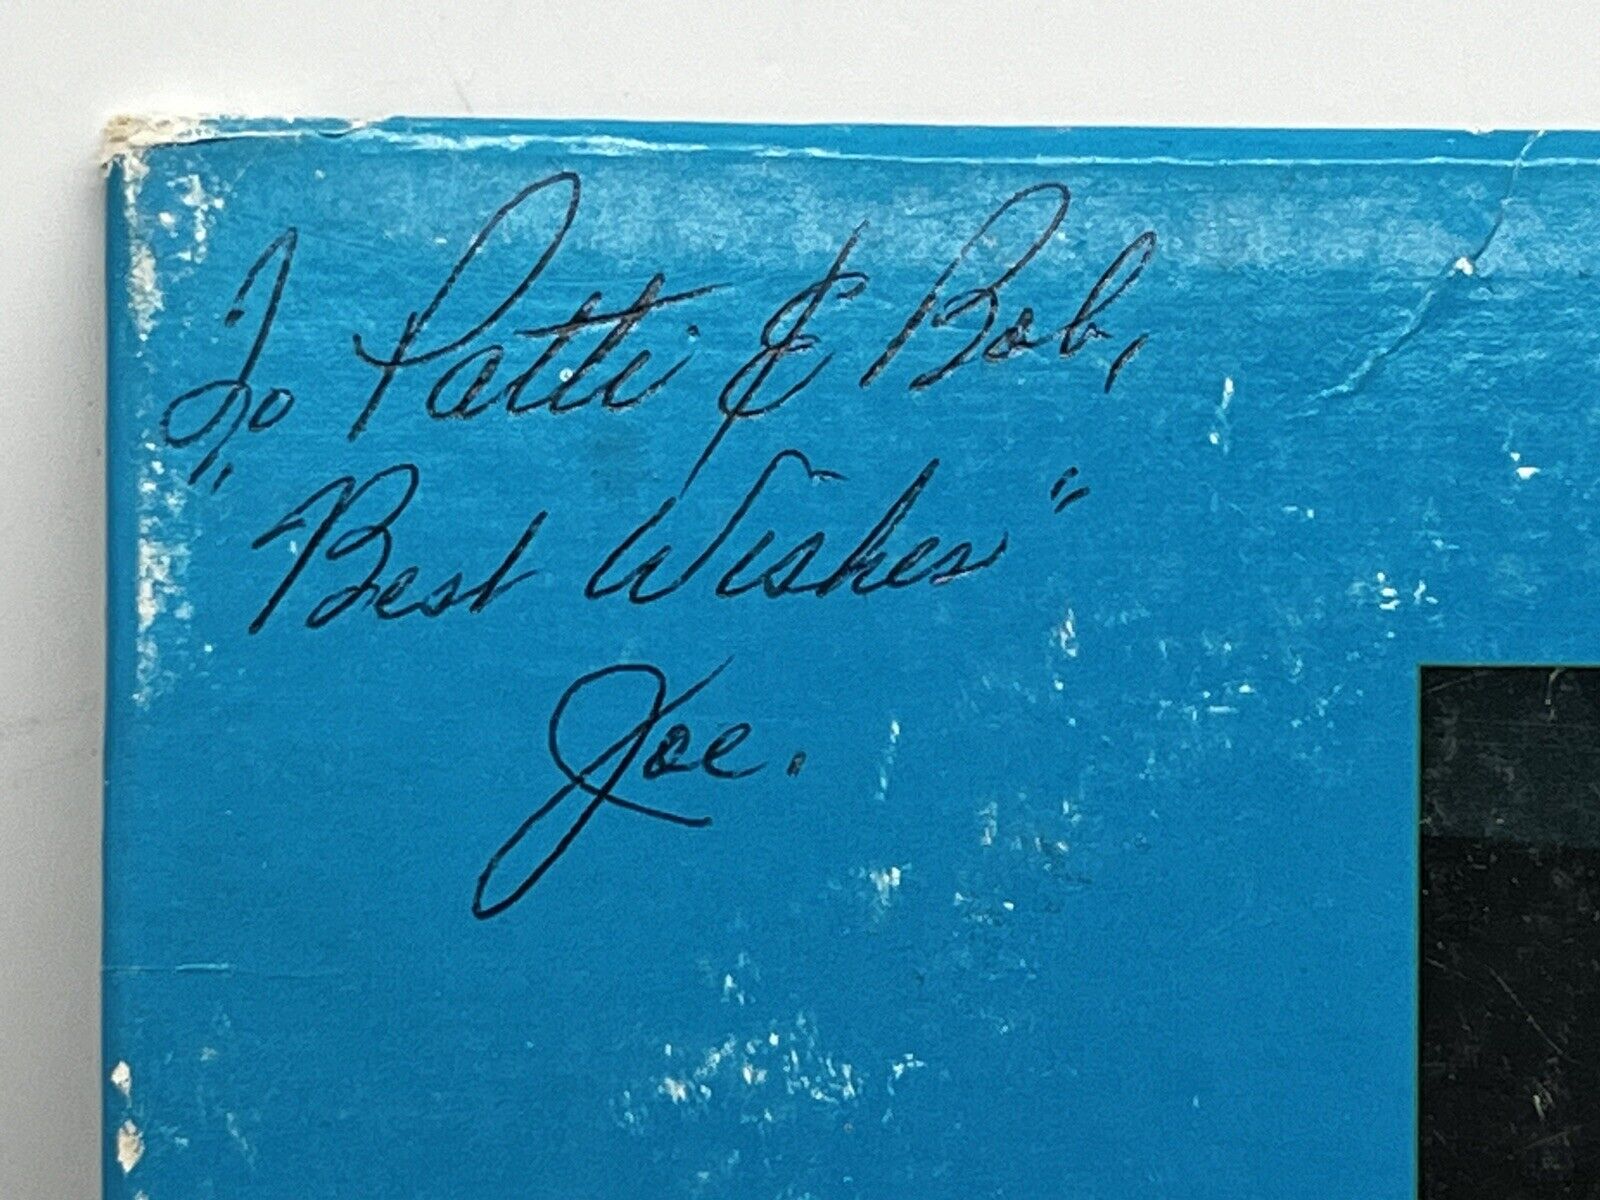 To Patti & Bob,
"Best Wishes"
Joe.